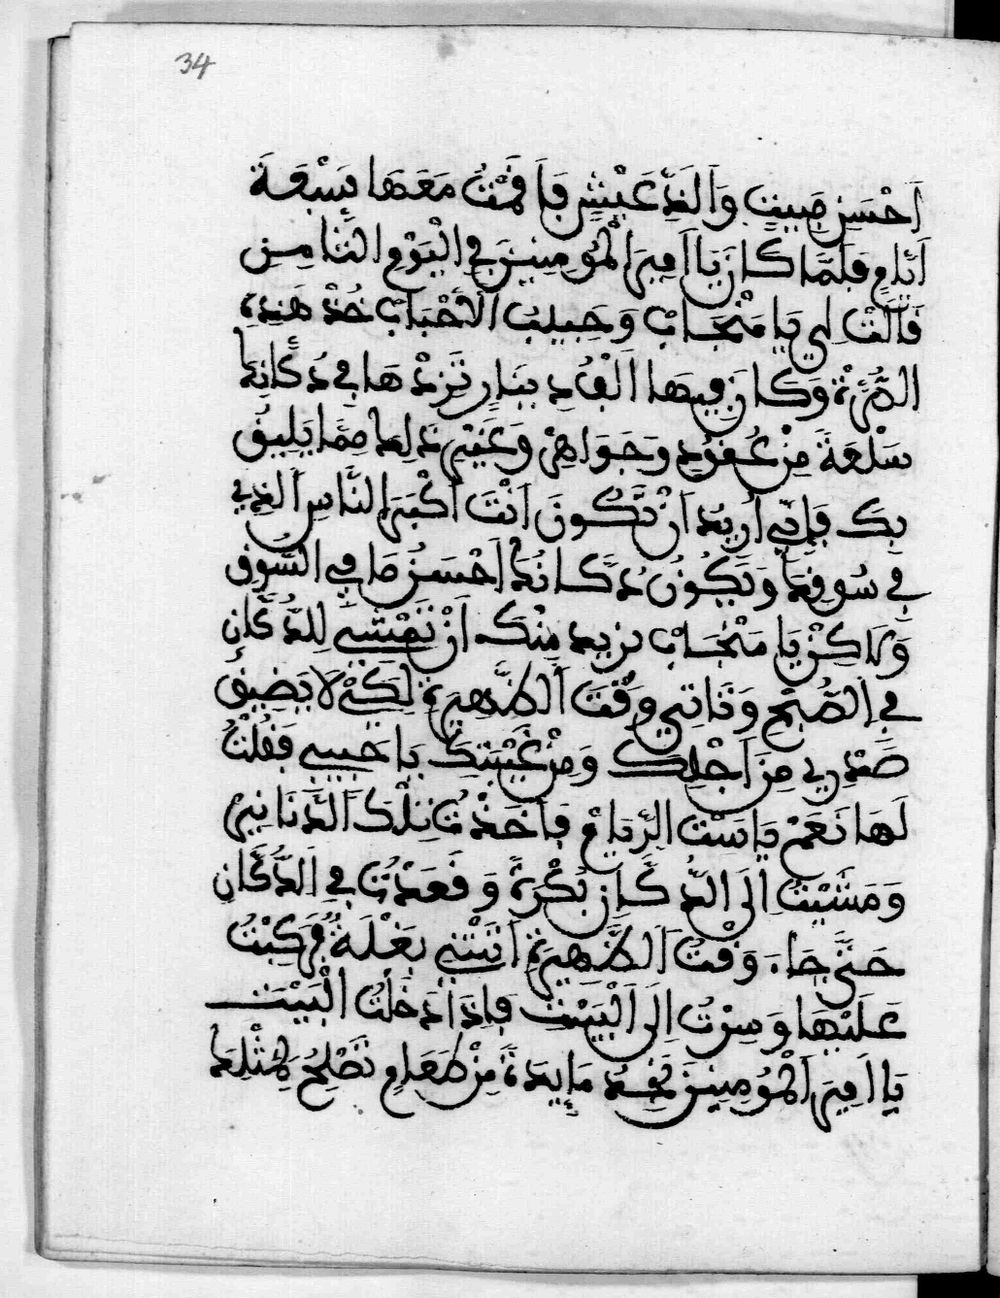 34
أَحْسَنِ مَبِيتٍ وَأَلَذِّ عَيْشٍ فَأَقَمْتُ مَعَهَا سَبْعَةَ
أَيَّامٍ فَلَمَّا كَانَ يَا أَمِيرَ الْمُومِنِينَ فِي الْيَوْمِ الثَّامِنِ
قَالَتْ لِي يَا مَنْجَابْ وَحَبِيبُ الْأَحْبَابْ خُذْ هَذِهِ
الصُّرَّةْ وَكَانَ فِيهَا أَلْفُ دِينَارٍ تَزِدْهَا فِي دُكَّانِكَ
سَلْعَةً مِنْ عُقُودٍ وَجَوَاهِرْ وَغَيْرِ ذَلِكَ مِمَّا يَلِيقُ
بِكَ فَإِنِّي أُرِيدُ أَنْ تَكُونَ أَنْتَ أَكْبَرَ النَّاسِ الَّذِي
فِي سُوقِكَ وَيَكُونُ دُكَّانُكَ أَحْسَنُ مَا فِي السُّوقِ
وَلَاكِنْ يَا مَنْجَابْ نريد مِنْكَ أَنْ تَمْشِي لِلدُّكَّانِ
فِي الصُّبْحِ وَتَاتِي وَقْتَ الظَّهِيرَةِ لِكَيْ لَا يَضِيقُ
صَدْرِي مِنَ أَجْلِكَ وَمِنْ غَيْبَتِكَ يَا حَبِيبِي فَقُلْتُ
لَهَا نَعَمْ يَا سَتْ الرِّيَامْ فَأَخَذْتُ تِلْكَ الدَّنَانِيرْ
وَمَشَيْتُ إِلَى الدُّكَّانِ بُكْرَةً وَقَعَدْتُ فِي الدُّكَّانِ
حَتَّى جَاءَ وَقْتُ الظَّهِيرَةِ أَتَتْنِي بَغْلَةٌ فَرَكِبْتُ
عَلَيْهَا وَسِرْتُ إِلَى الْبَيْتِ فَإِذَا دَخَلْتُ الْبَيْتَ
يَا أَمِيرَ الْمُومِنِينَ نَجِدُ مَايِدَةً مِنْ طَعَامٍ تَصْلِحُ لِمِثْلِكَ